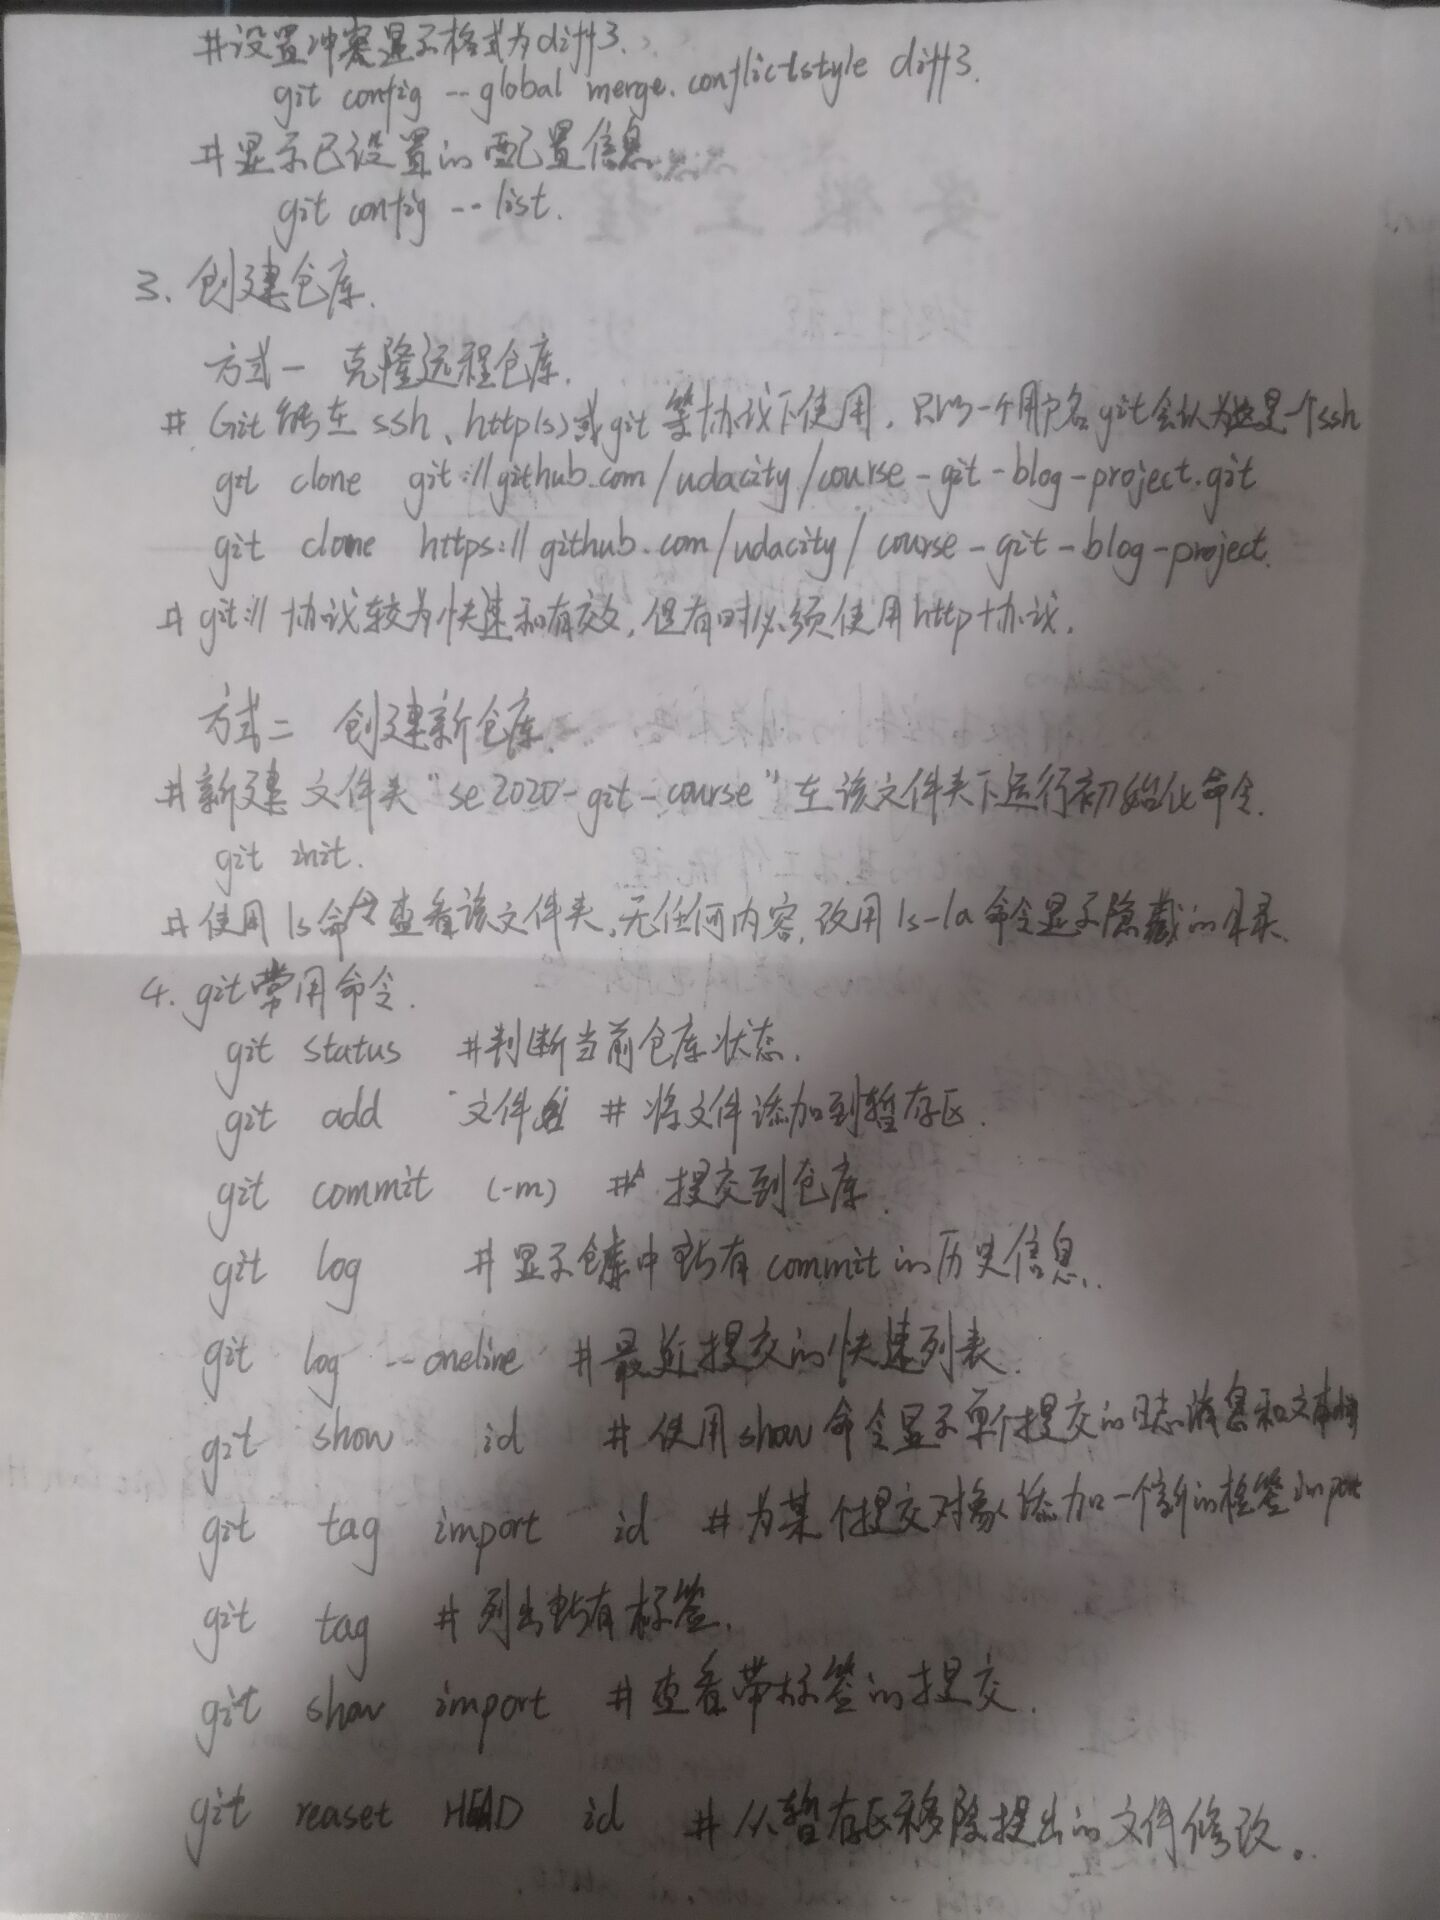 #设置冲突显示格式为diff3.
git config --global merge.conflictstyle diff3.
#显示已设置的配置信息.
git config --list.
3. 创建仓库.
方式一 克隆远程仓库.
# Git能在ssh、http(s)或git等协议下使用,只购一个用户名git会认为这是一个ssh
git clone git://github.com/udacity/course-git-blog-project.git
git clone https://github.com/udacity/course-git-blog-project.
# git://协议较为快速和有效,但有时必须使用http协议.
方式二 创建新仓库.
#新建文件夹"se2020-git-course"在该文件夹下运行初始化命令.
git init.
#使用ls命令查看该文件夹,无任何内容,改用ls-la命令显示隐藏的目录.
4. git常用命令.
git status #判断当前仓库状态.
git add 文件 #将文件添加到暂存区.
git commit (-m) #提交到仓库.
git log #显示仓库中所有commit的历史信息.
git log --oneline #最近提交的快速列表.
git show id #使用show命令显示单个提交的日志消息和文本
git tag import id #为某个提交对象添加一个新的标签import
git tag #列出所有标签.
git show import #查看带标签的提交.
git reaset HEAD id #从暂存区移除提出的文件修改。